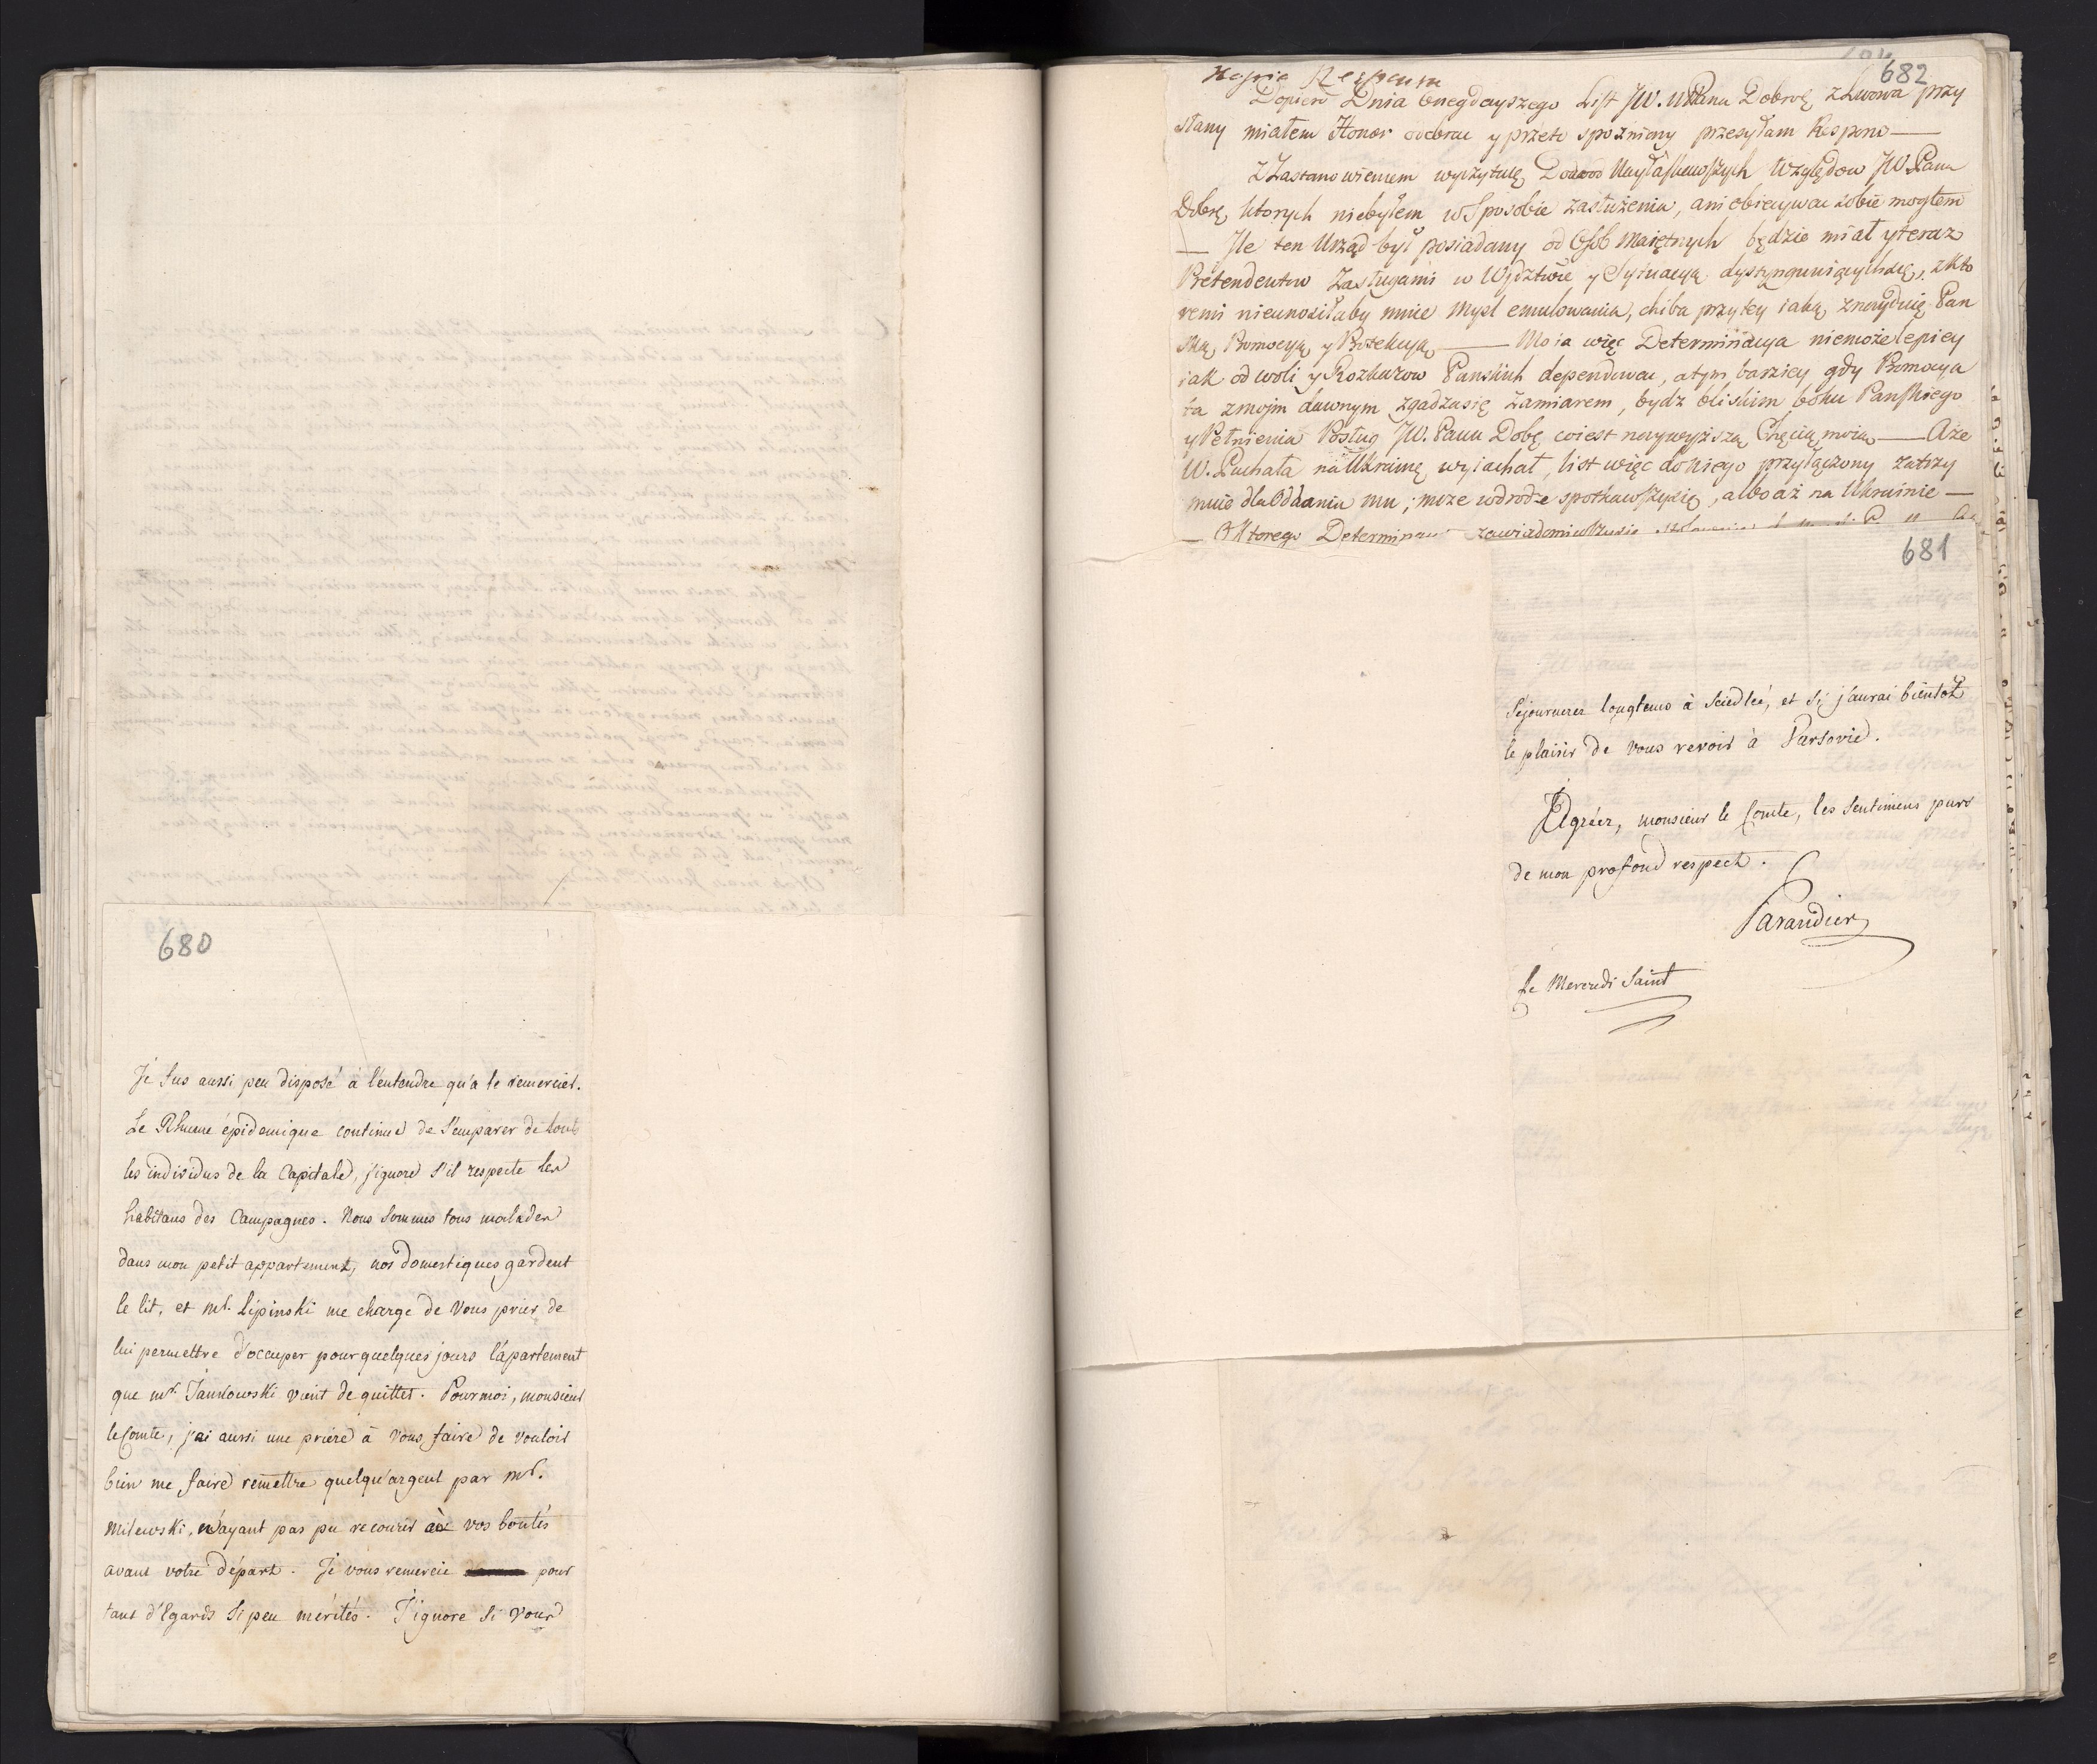 680
Je fus aussi peu disposé à l'entendre qu'a le remercier.
Le Rhume épidemique continue de s'emparer de touts
les individus de la Capitale, j'ignore s'il respecte les
habitans des Campagnes. Nous sommes tous malades
dans mon petit appartement, nos domestiques gardent
le lit, et mr. Lipinski me charge de vous prier de
lui permettre d'occuper pour quelques jours l'apartement
que mr. Jankowski vient de quitter. Pour moi, monsieur
le Comte, j'ai aussi une prière à vous faire de vouloir
bien me faire remettre quelqu'argent par mr.
Milewski, n'ayant pas pu recourir à vos bontés
avant votre départ. Je vous remercie pour
tant d'Egards si peu mérités. J'ignore si vous
682
Kopia Responsu
Dopiero Dnia Onegdayszego List JW. WPana Dobrę zLwowa przy
słany miałem Honor odebrac y przeto spozniony przesyłam Respons —
ZZastanowieniem wyczytuię Dowod Nayłaskawszych Względow JW. Pana
Dobrę, ktorych niebyłem wSposobie zasłużenia, ani obiecywac sobie mogłem
— Ile ten Urząd był posiadany od Osob Maiętnych będzie miał yteraz
Pretendentow Zasługami w Wjdztwie y Sytuacyą dystyngwuiącychsię, zkto
remi nieunosiłaby mnie Mysl emulowania, chiba przytey iaką znayduię Pan
ską Promocyą y Protekcyą — Moia więc Determinacya niemoże lepiey
iak od woli y Rozkazow Panskich dependowac, atym barziey gdy Promocya
ta zmoim dawnym zgadzasię Zamiarem, bydz bliskim boku Panskiego
yPełnienia Posług JW. Pana Dobę, coiest naywyższą Chęcią moią — Aże
W. Puchała na Ukrainę wyiachał, list więc doNiego przyłączony zatrzy
muię dla Oddania mu; może wdrodze spotkawszysię, albo aż na Ukrainie —
— Oktorego zawiadomiwszysię
681
Séjournerez longtems à Siedlcé, et si j'aurai bientôt
le plaisir de vous revoir à Varsovie.
Agréez, monsieur le Comte, les sentimens purs
de mon profond respect.
Parandier
le Mercredi Saint